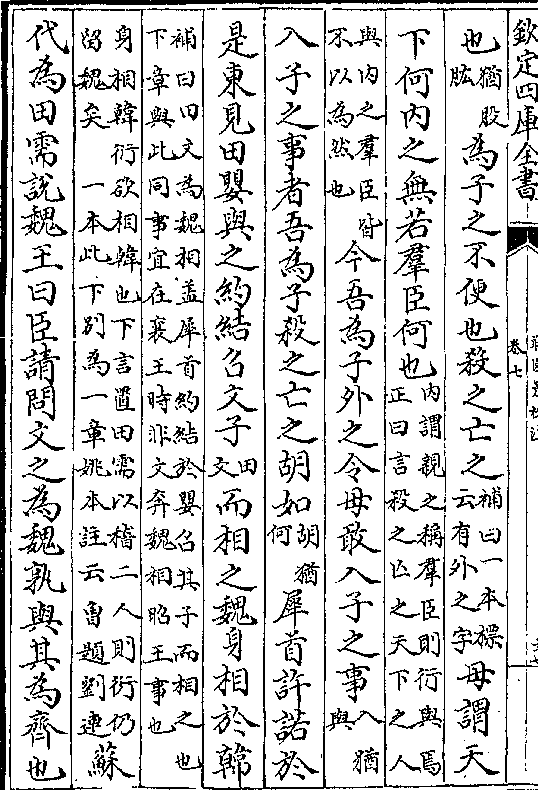 欽定四庫全書
戰國策校注
卷七
也猶股肱為子之不便也殺之亡之補曰一本標云有外之字毋謂天
下何内之無若羣臣何也内謂親之稱羣臣則衍與焉正曰言殺之亡之天下之人
與内之羣臣皆不以為然也今吾為子外之令毋敢入子之事入猶與
入子之事者吾為子殺之亡之胡如胡猶何犀首許諾於
是東見田嬰與之約結召文子田文而相之魏身相於韓
補曰田文為魏相蓋犀首約結於嬰召其子而相之也下章與此同事宜在襄王時非文奔魏相昭王事也
身相韓衍欲相韓也下言置田需以稽二人則衍仍留魏矣 一本此下别為一章姚本註云曾題劉連蘇
代為田需說魏王曰臣請問文之為魏孰與其為齊也